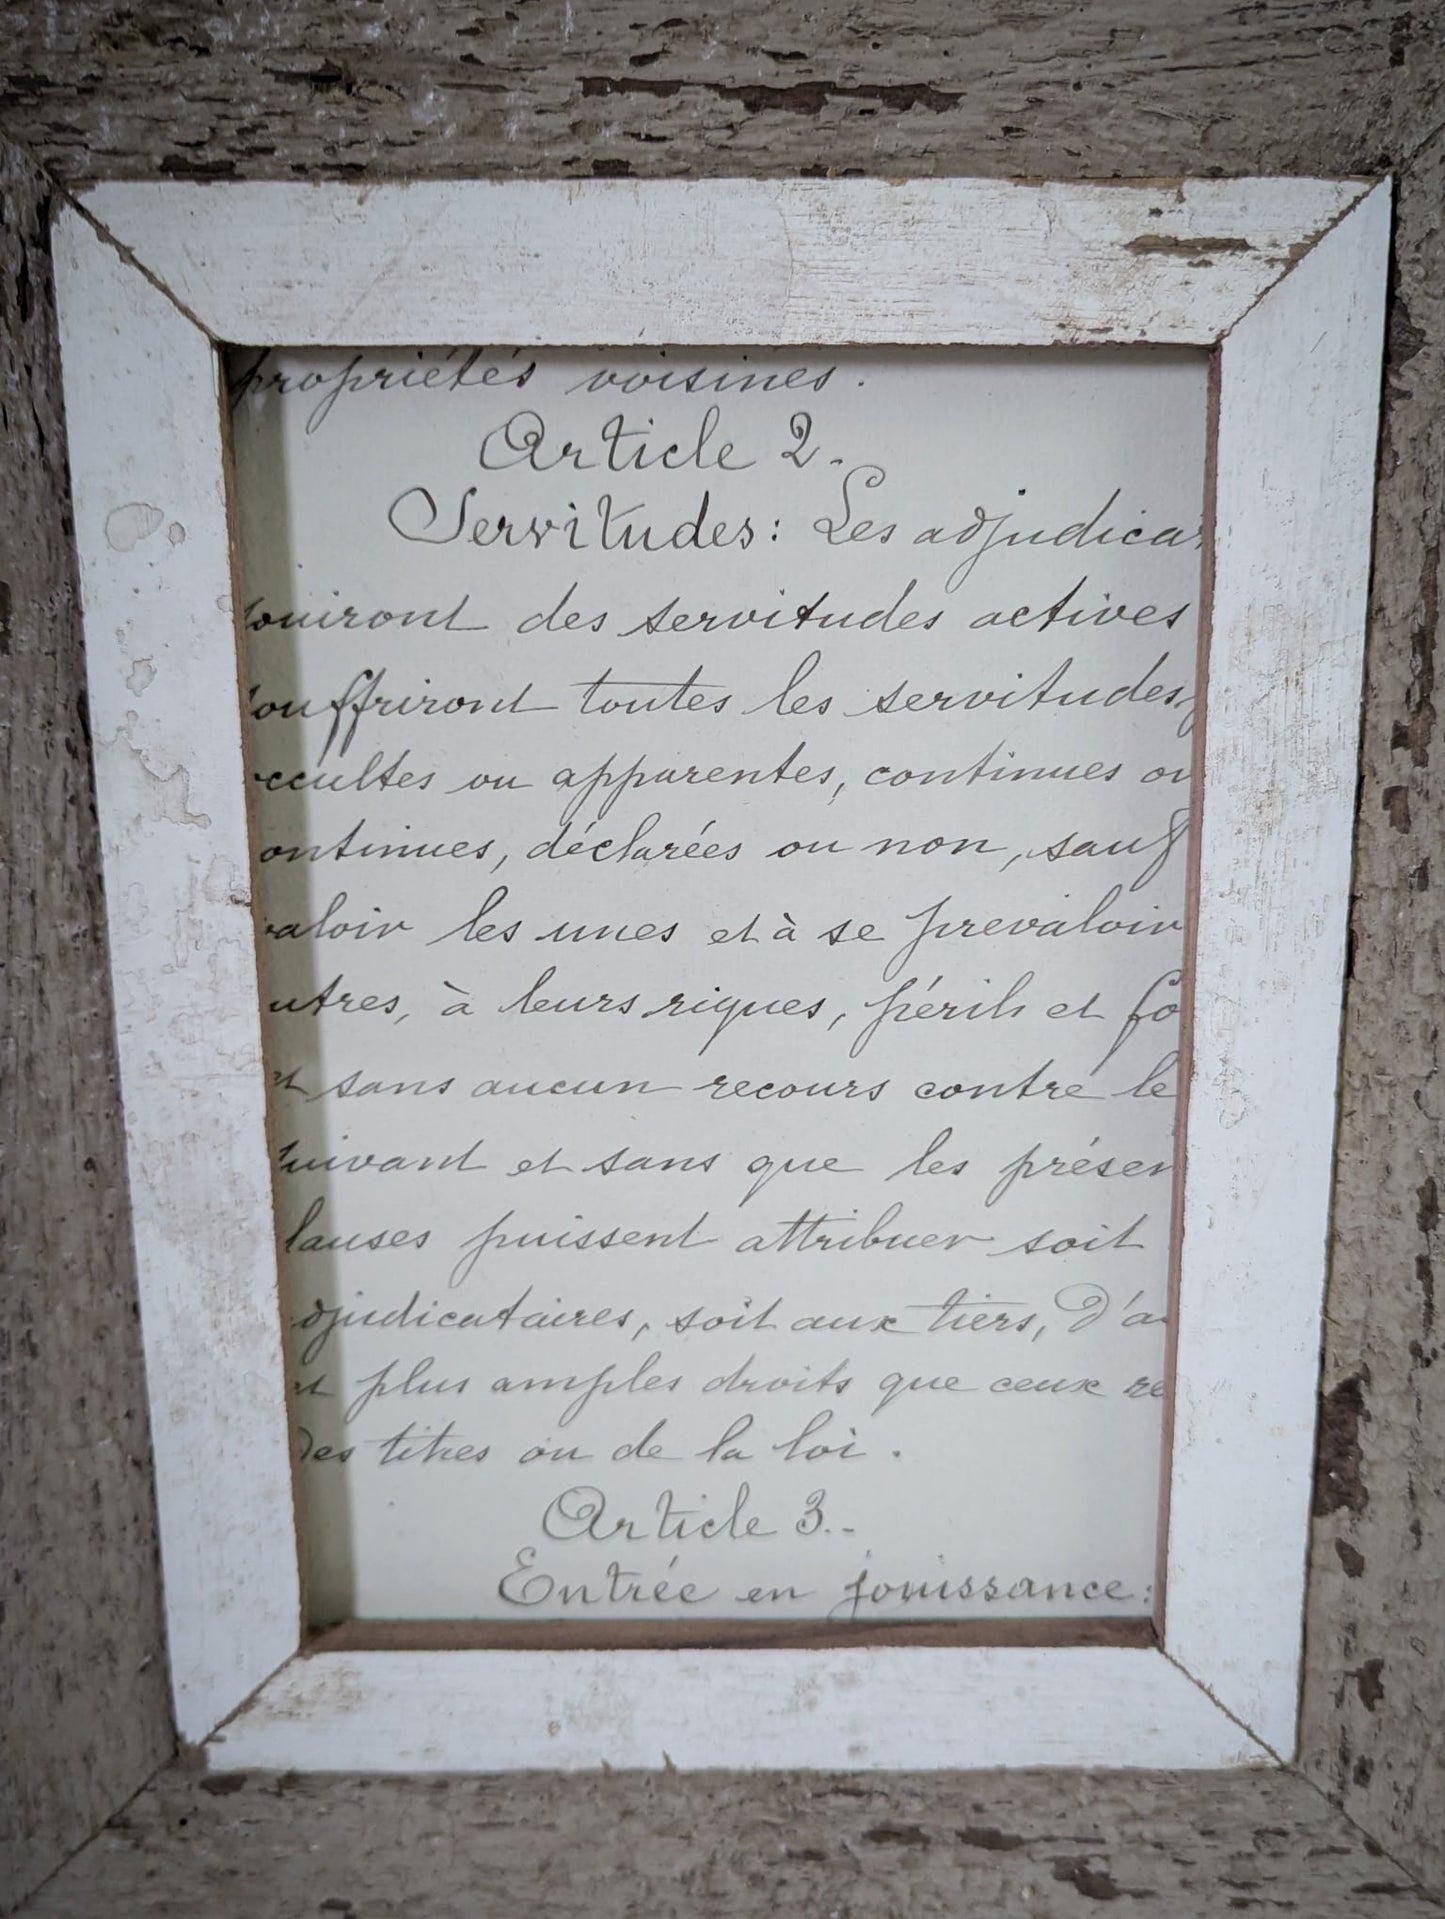 propriétés voisines.
Article 2.
Servitudes: Les adjudica
jouiront des servitudes actives
souffriront toutes les servitudes,
ccultes ou apparentes, continues ou
ontinues, déclarées ou non, sauf
valoir les unes et à se prevaloir
utres, à leurs riques, périls et fo
et sans aucun recours contre le
uivant et sans que les présen
lauses puissent attribuer soit
djudicataires, soit aux tiers, d'a
et plus amples droits que ceux re
des titres ou de la loi.
Article 3..
Entrée en jouissance: